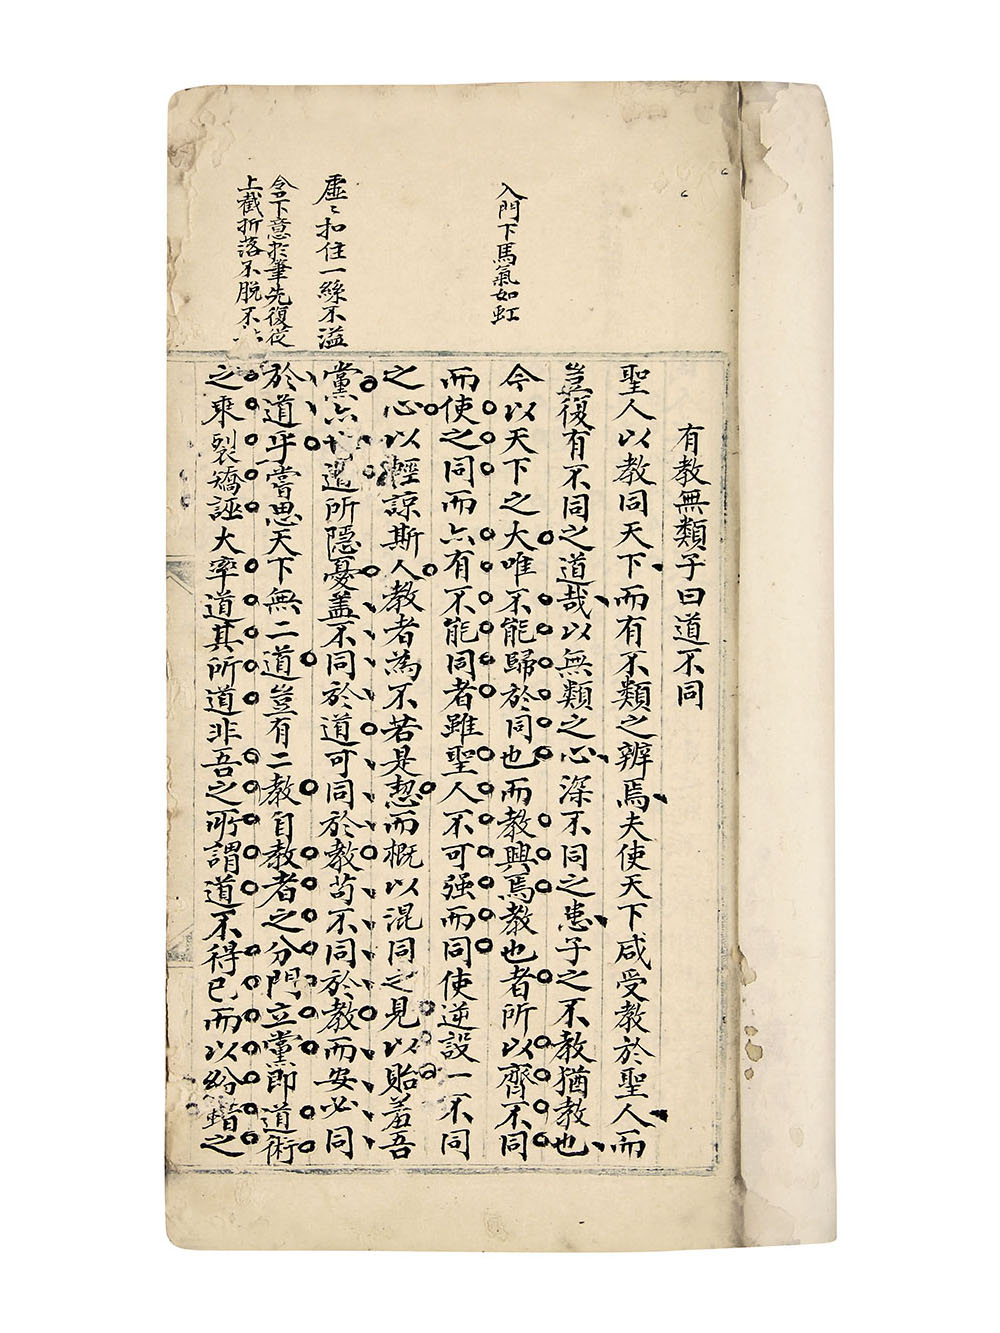 入門下馬氣如虹
虛〻扣住一絲不溢
含下意於筆先復從
上截折落不脫不
有教無類子曰道不同
聖人以教同天下而有不類之辨焉夫使天下咸受教於聖人而
豈復有不同之道哉以無類之心深不同之患子之不教猶教也
今以天下之大唯不能歸於同也而教興焉教也者所以齊不同
而使之同而亦有不能同者雖聖人不可强而同使逆設一不同
之心以輕諒斯人教者為不若是恝而概以混同之見以貽羞吾
黨亦 道所隱憂蓋不同於道可同於教苟不同於教而安必同
於道乎嘗思天下無二道豈有二教自教者之分門立黨即道術
之乘裂矯誣大率道其所道非吾之所謂道不得已而以紛錯之